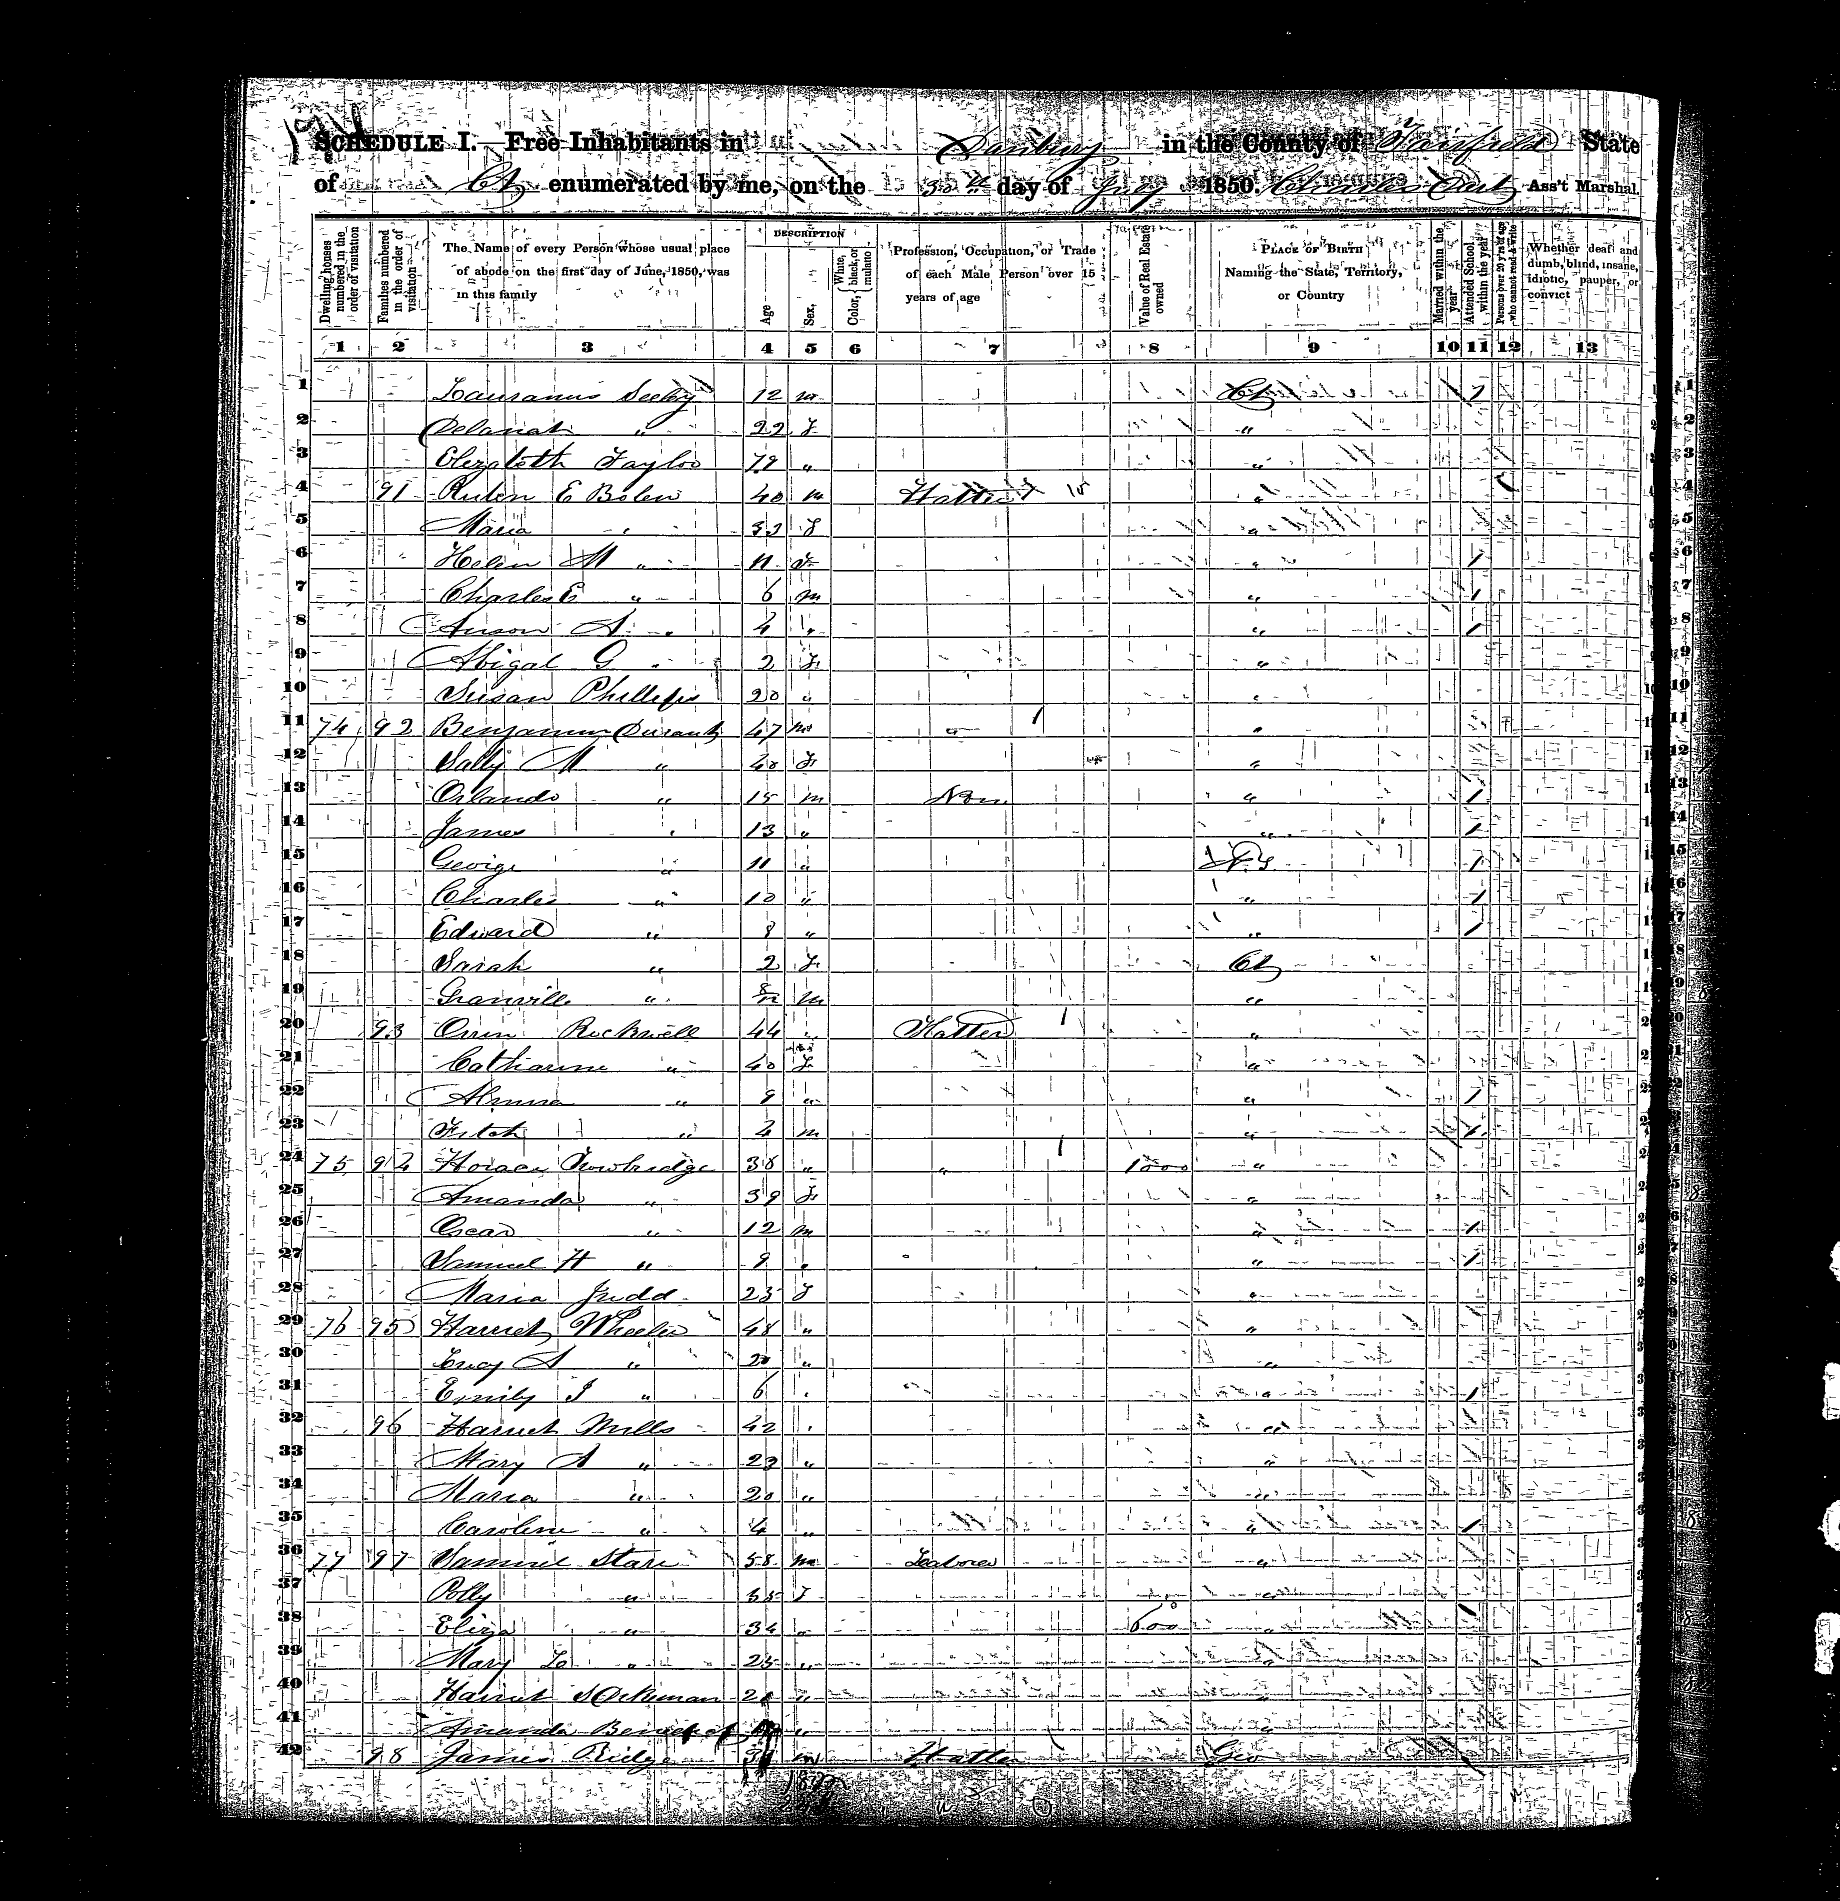 SCHEDULE I.—Free Inhabitants in Danbury in the County of Fairfield State
of Ct enumerated by me, on the 30th day of July 1850. Charles Ass't Marshal
DESCRIPTION
Dwelling houses numbered in the order of visitation
Families numbered in the order of visitation
The Name of every Person whose usual place of abode on the first day of June, 1850, was in this family
Age
Sex,
Color, White, black, or mulatto
Profession, Occupation, or Trade of each Male Person over 15 years of age
Value of Real Estate owned
PLACE OF BIRTH Naming the State, Territory, or Country
Married within the year
Attended School within the year
Persons over 20 y'rs of age who cannot read & write
Whether deaf and dumb, blind, insane, idiotic, pauper, or convict
1 2 3 4 5 6 7 8 9 10 11 12 13
1 Seeley 12 m Ct 1
2 " 22 f "
3 Elizabeth Taylor 79 "
4 91 Ruben E Bolen 40 m Hatter "
5 Maria " 32 f "
6 Helen M " 11 f " 1
7 Charles E " 6 m " 1
8 Anson A " 4 " " 1
9 Abigal G " 2 f "
10 Susan Phillips 20 " "
11 74 92 Benjamin Durant 47 m " "
12 Sally M " 40 f "
13 Orlando " 15 m Non " 1
14 James " 13 " " 1
15 George " 11 " N.Y. 1
16 Charles " 10 " " 1
17 Edward " 8 " " 1
18 Sarah " 2 f Ct
19 Granville " 8/12 m "
20 93 Orrin Rockwell 44 " Hatter "
21 Catharine " 40 f "
22 Almira " 9 " " 1
23 Fitch " 4 m " 1
24 75 94 Horace Trowbridge 38 " " 1000 "
25 Amanda " 39 f "
26 Oscar " 12 m " 1
27 Samuel H " 9 " " 1
28 Maria Judd 25 f "
29 76 95 Harriet Wheeler 48 " "
30 Lucy A " 20 " "
31 Emily J " 6 " " 1
32 96 Harriet Mills 42 " "
33 Mary A " 23 " "
34 Maria " 20 " "
35 Caroline " 4 " " 1
36 77 97 Samuel Starr 58 m Laborer "
37 Polly " 55 f "
38 Eliza " 34 " 600 "
39 Mary " 25 " "
40 Harriet " "
41 Amanda Benedict " "
42 98 James Ridge m Hatter Geo